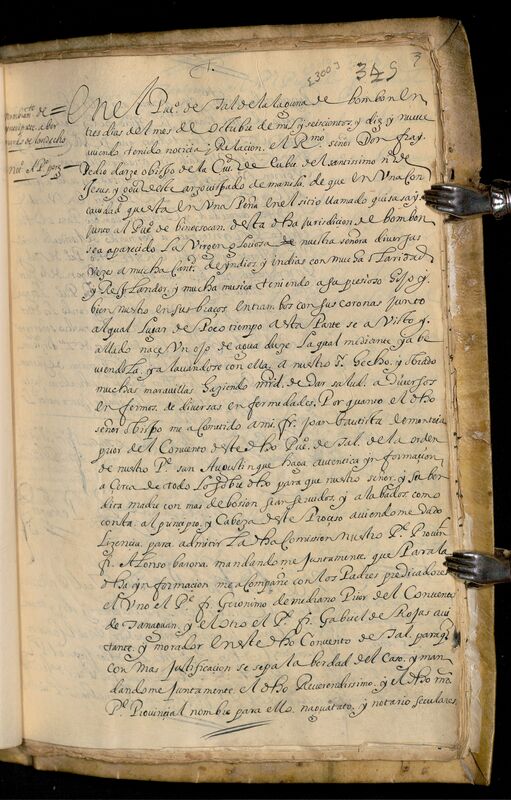 [3003]
349
Nombram.to de
En el Pu.o de Tal de la laguna de bombon En
tres dias del mes de Octubre de mill y seiscientos y diez y nueve
aviendo tenido noticia y Relacion el R.mo señor Don fray
Pedro darze obispo de la Ciu.d de
Jesus y gou.or deste arçouispado de manila, de que En Una Con
cauidad questa en Una Peña En el sitio llamado
junto al Pu.o de binocsocan desta dha jurisdicion de bombon
sea aparecido La Virgen gloriosa de nuestra señora diuersas
Vezes a mucha cant.d de yndios y yndias con mucha Claridad
y Resplandor y mucha musica teniendo a su precioso hijo y
bien nuestro en sus braços Entrambos con sus coronas junto
al qual lugar de Poco tiempo a esta Parte se a Visto y
allado nace Un ojo de agua dulze La qual mediante ya be
viendola, ya lauandose con ella, a nuestro s.r hecho y obrado
muchas marauillas haziendo mrd. de dar salud a Diuersos
Enfermos de diuersas enfermedades. Por quanto el dho
señor obispo me a Cometido a mi fr. Joan bautista de
prior del Conuento deste dho Pu.o de Tal de la orden
de nuestro P.e san Augustin que haga autentica ynformacion
a Cerca de todo Lo sobre dho para que nuestro señor y su ben
dita madre con mas deboçion sean seruidos y alabados como
consta al principio y Cabeza deste Proceso aviendome Dado
Licencia para admitir La dha Comission Nuestro P.e Prouin.l
fr. Alonso barona mandandome juntamente que Para la
dha ynformacion me acompañe con los Padres predicadores
el Uno el P.e fr. Geronimo de medrano Prior del Conuento
de Tanauan y el otro el P.e fr. Gabriel de Rojas
tante y morador En este dho Conuento de Tal para q.
con mas justificacion se sepa la berdad del Caso y man
dandome juntamente el dho Reuerendissimo y el dho nro
P.e Prouincial nombre para ello naguatato y notario seculares